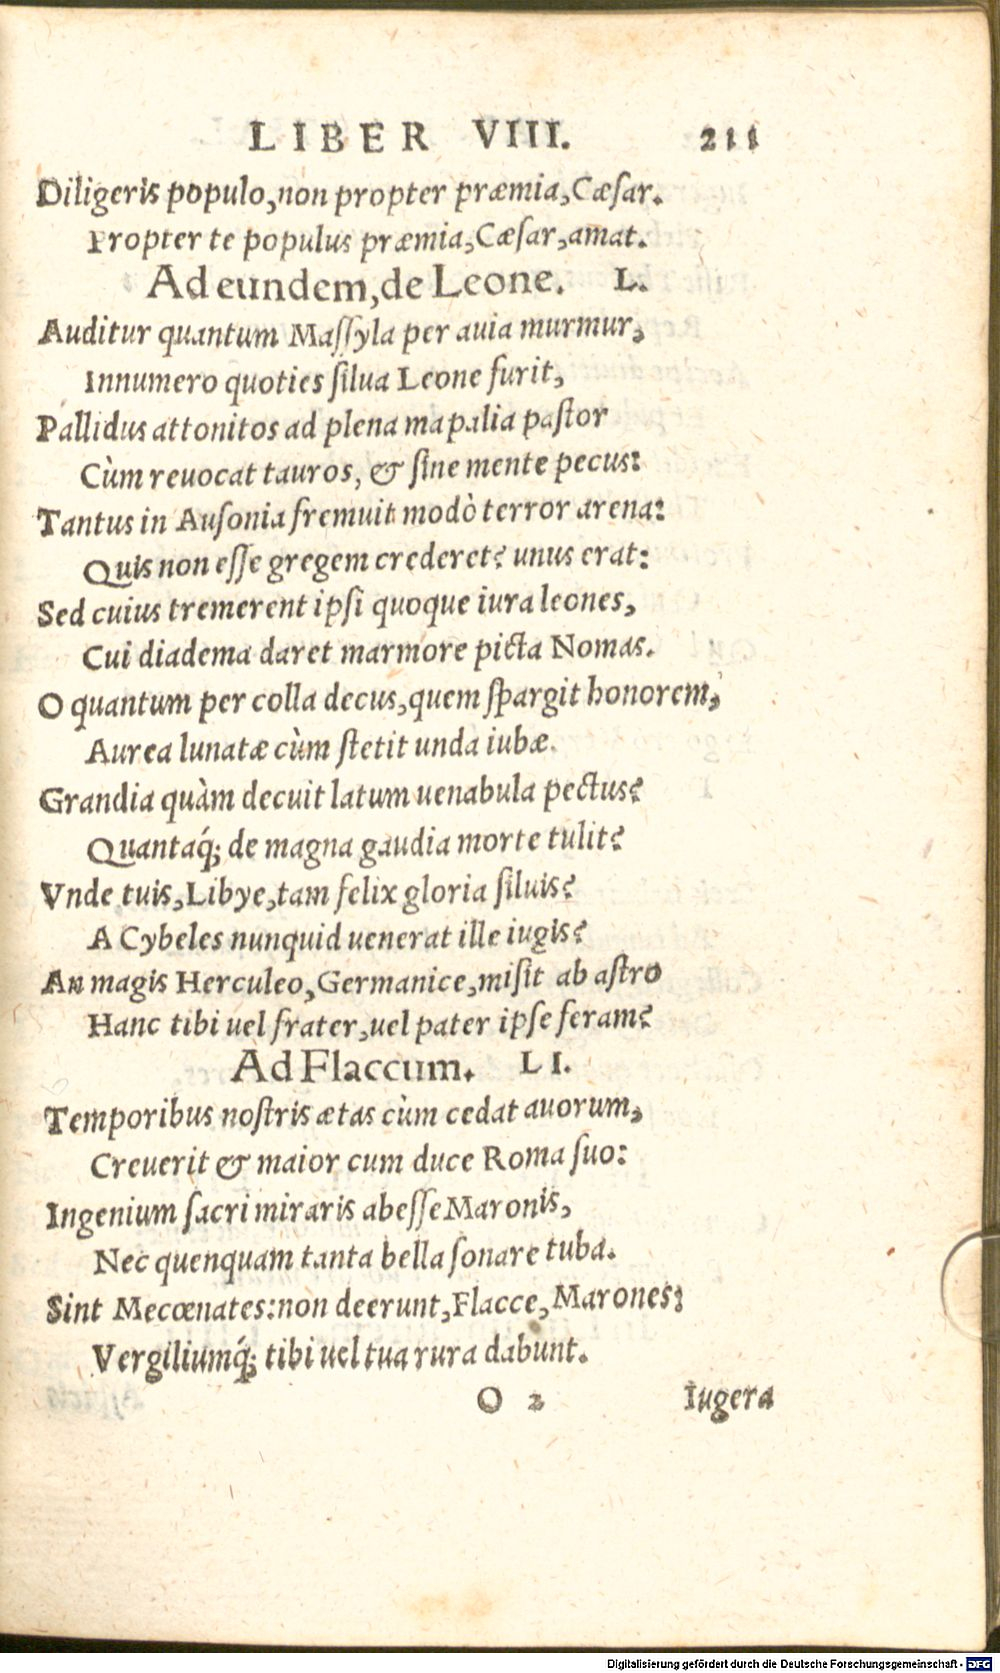 LIBER VIII. 211
Diligeris populo,non propter præmia,Cæsar.
Propter te populus præmia,Cæsar,amat.
Ad eundem,de Leone. L.
Auditur quantum Massyla per auia murmur,
Innumero quoties silua Leone furit,
Pallidus attonitos ad plena mapalia pastor
Cùm reuocat tauros, & sine mente pecus:
Tantus in Ausonia fremuit modò terror arena:
Quis non esse gregem crederet? unus erat:
Sed cuius tremerent ipsi quoque iura leones,
Cui diadema daret marmore picta Nomas.
O quantum per colla decus,quem spargit honorem,
Aurea lunatæ cùm stetit unda iubæ.
Grandia quàm decuit latum uenabula pectus?
Quantaq́; de magna gaudia morte tulit?
Vnde tuis,Libye,tam felix gloria siluis?
A Cybeles nunquid uenerat ille iugis?
An magis Herculeo,Germanice,misit ab astro
Hanc tibi uel frater,uel pater ipse feram?
Ad Flaccum. LI.
Temporibus nostris ætas cùm cedat auorum,
Creuerit & maior cum duce Roma suo:
Ingenium sacri miraris abesse Maronis,
Nec quenquam tanta bella sonare tuba.
Sint Mecœnates:non deerunt,Flacce,Marones:
Vergiliumq́; tibi uel tua rura dabunt.
O 2 Iugera
Digitalisierung gefördert durch die Deutsche Forschungsgemeinschaft - DFG